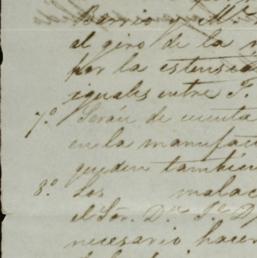 Barrio y M
el giro de la
por la estension
iguales entre J.
7º Serán de cuenta
en la manufac
queden tambien
8º Los malac
el Sor. Dn
necesario hacer